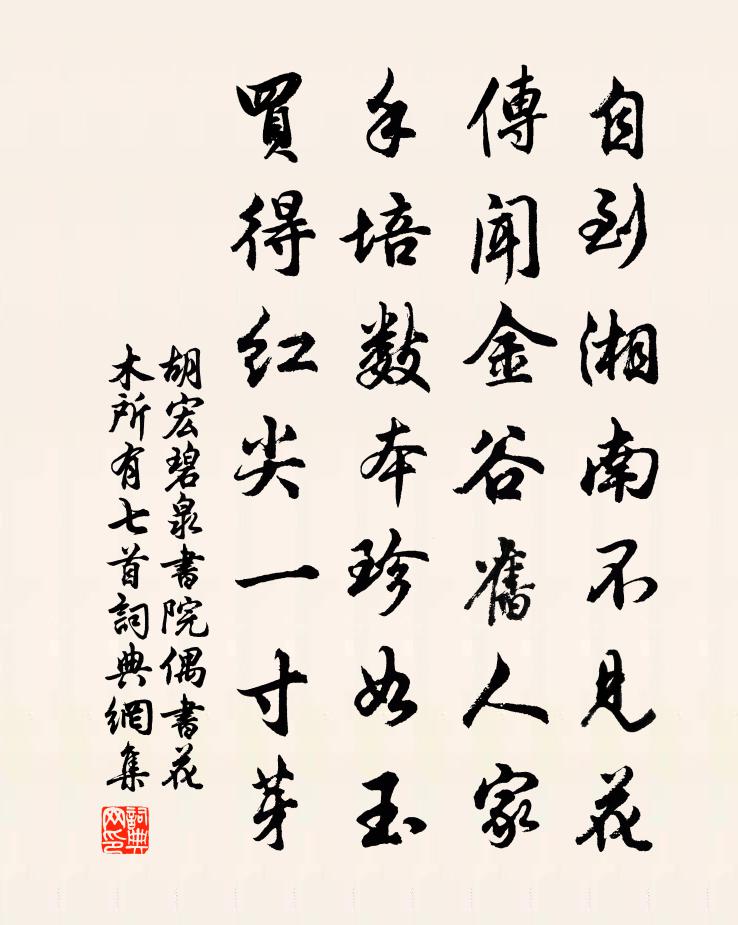 自到湘南不見花
傳聞金谷舊人家
手培数本珍如玉
買得红尖一寸芽
胡宏碧泉書院偶書花
木所有七首詞典網集
詞典
网印